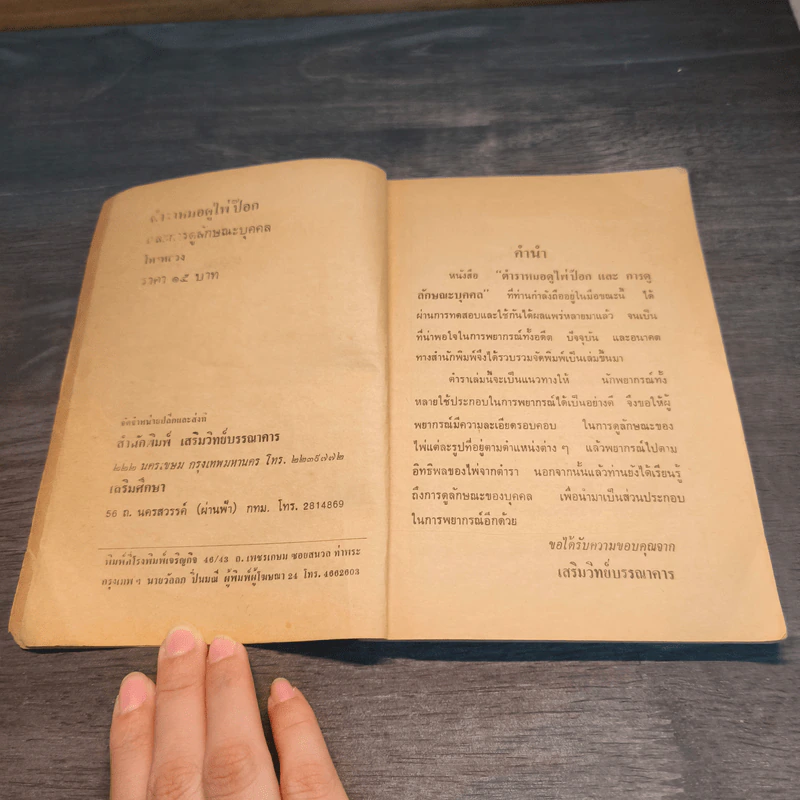 ตำราหมอดูไพ่ป๊อก
และการดูลักษณะบุคคล
ราคา ๑๕ บาท
จัดจำหน่ายปลีกและส่งที่
สำนักพิมพ์ เสริมวิทย์บรรณาคาร
๒๒๒ นคร.เขษม กรุงเทพมหานคร โทร. ๒๒๓๙๗๗๒
เสริมศึกษา
56 ถ. นครสวรรค์ (ผ่านฟ้า) กทม. โทร. 2814869
พิมพ์ที่โรงพิมพ์เจริญกิจ 46/43 ถ. เพชรเกษม ซอยสนวล ท่าพระ
กรุงเทพ ฯ นายวัลลภ ปิ่นมณี ผู้พิมพ์ผู้โฆษณา 24 โทร. 4662603
คำนำ
หนังสือ "ตำราหมอดูไพ่ป๊อก และ การดู
ลักษณะบุคคล" ที่ท่านกำลังถืออยู่ในมือขณะนี้ ได้
ผ่านการทดสอบและใช้กันได้ผลแพร่หลายมาแล้ว จนเป็น
ที่น่าพอใจในการพยากรณ์ทั้งอดีต ปัจจุบัน และอนาคต
ทางสำนักพิมพ์จึงได้รวบรวมจัดพิมพ์เป็นเล่มขึ้นมา
ตำราเล่มนี้จะเป็นแนวทางให้ นักพยากรณ์ทั้ง
หลายใช้ประกอบในการพยากรณ์ได้เป็นอย่างดี จึงขอให้ผู้
พยากรณ์มีความละเอียดรอบคอบ ในการดูลักษณะของ
ไพ่แต่ละรูปที่อยู่ตามตำแหน่งต่าง ๆ แล้วพยากรณ์ไปตาม
อิทธิพลของไพ่จากตำรา นอกจากนั้นแล้วท่านยังได้เรียนรู้
ถึงการดูลักษณะของบุคคล เพื่อนำมาเป็นส่วนประกอบ
ในการพยากรณ์อีกด้วย
ขอได้รับความขอบคุณจาก
เสริมวิทย์บรรณาคาร